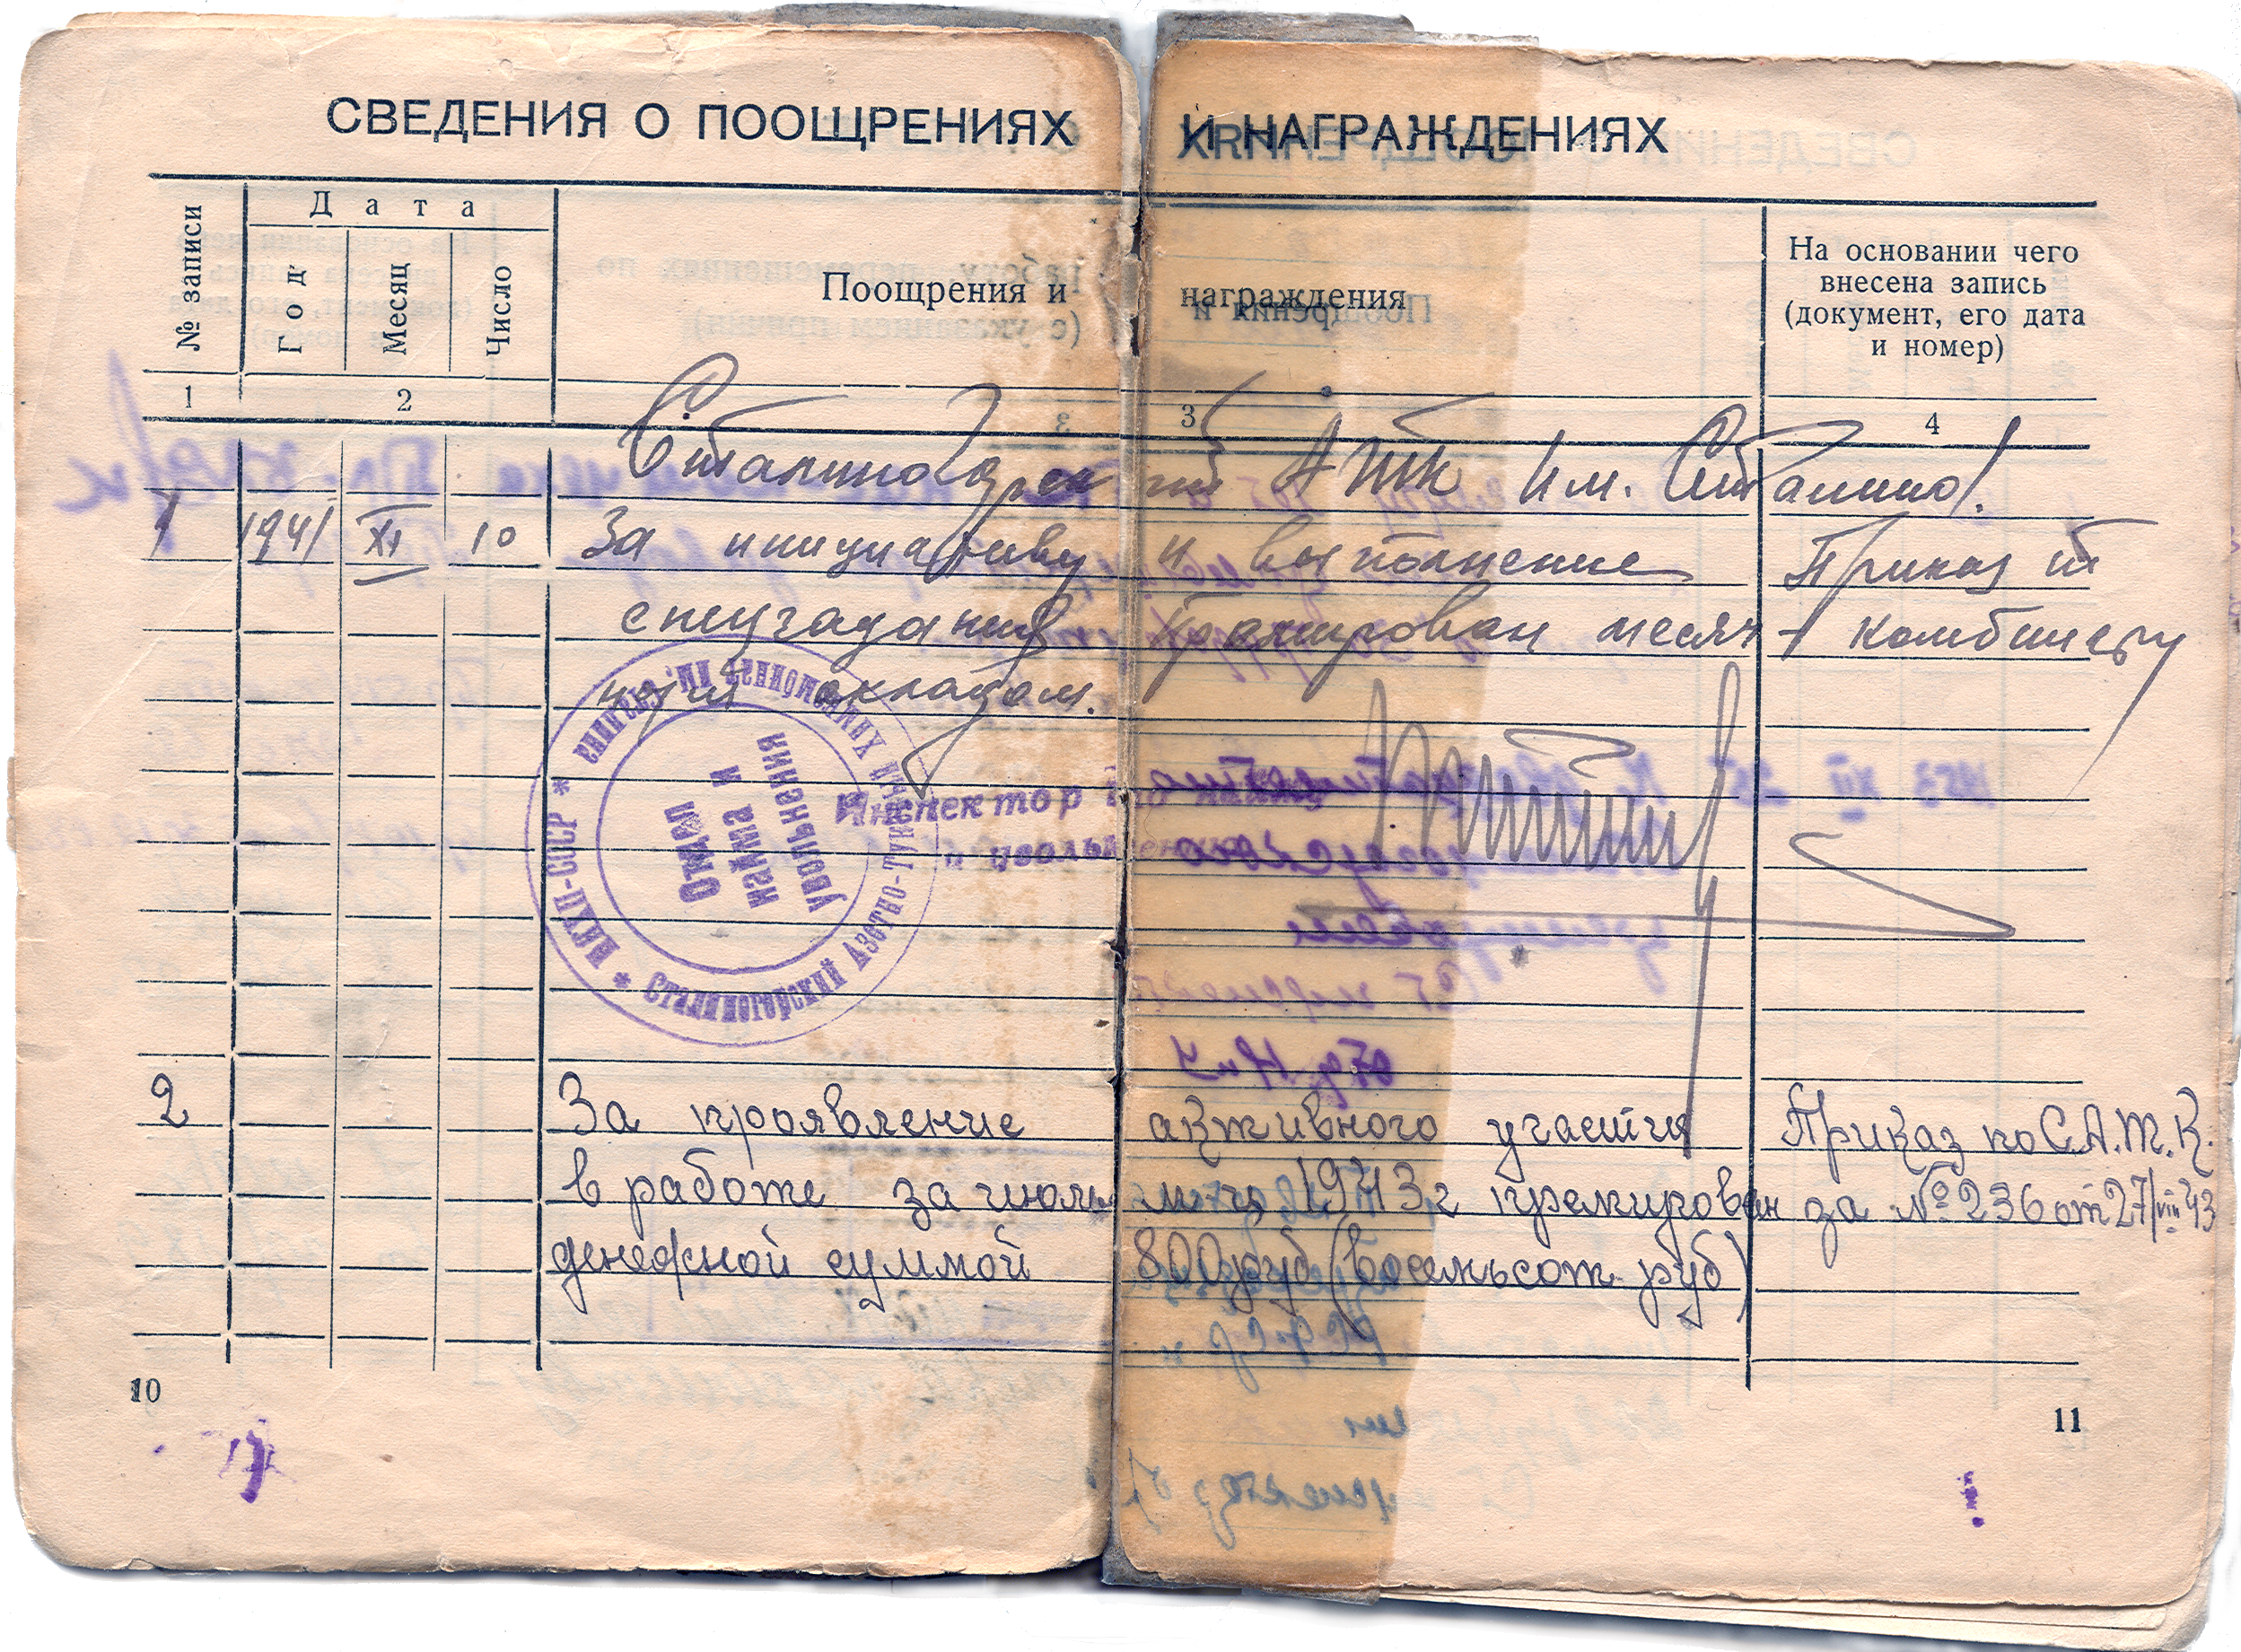 СВЕДЕНИЯ О ПООЩРЕНИЯХ И НАГРАЖДЕНИЯХ
№ записи
Дата
Год
Месяц
Число
Поощрения и награждения
На основании чего
внесена запись
(документ, его дата
и номер)
1 2 3 4
Сталиногорский АТК Им. Сталина.
1 1941 XI 10 За инициативу и выполнение Приказ
спецзадания премирован месяч- комбинату
ным окладом.
НКХП-СССР * Сталиногорский Азотно-Туковый Химкомбинат им. Сталина *
Отдел
найма и
увольнения
Инспектор по найму
и увольнению
2 За проявление активного участия Приказ по С.А.Т.К.
в работе за июль м-ц 1943г премирован за №236 от 27/VIII 43
денежной суммой 800 руб (восемьсот руб)
10
11